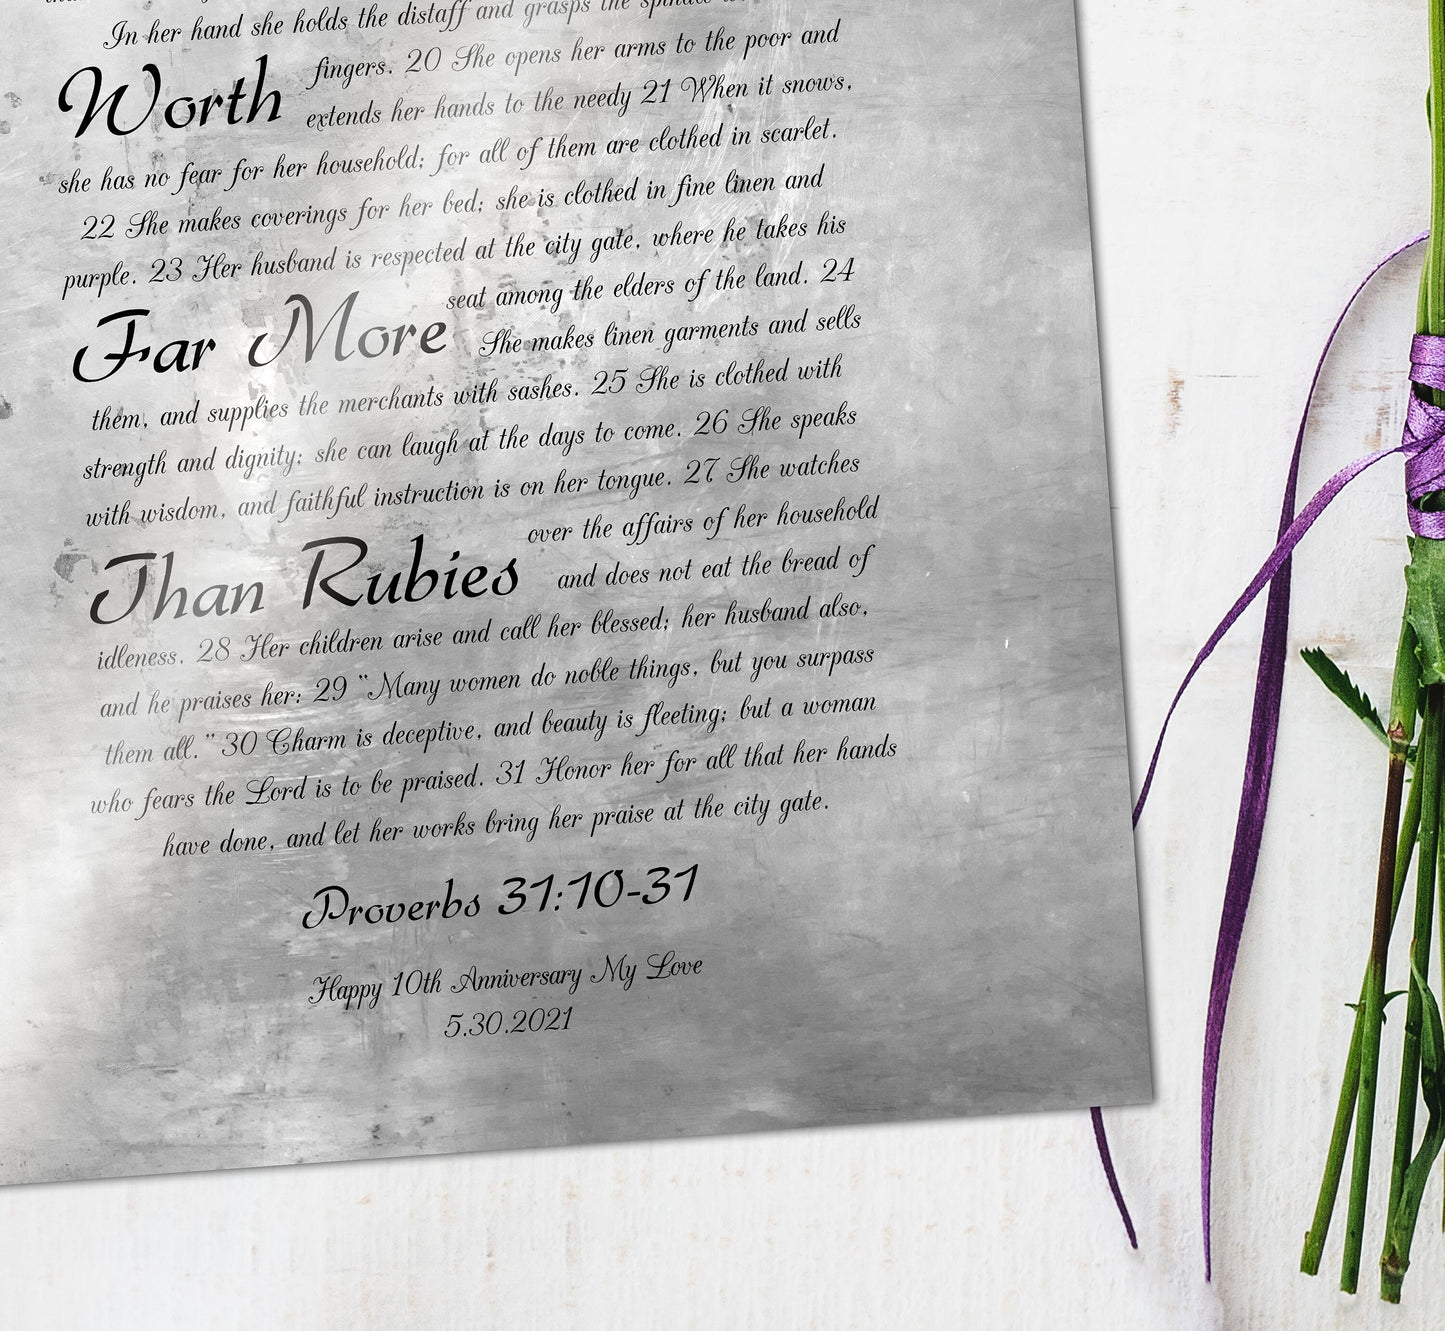 In her hand she holds the distaff and grasps the
Worth
fingers. 20 She opens her arms to the poor and
extends her hands to the needy 21 When it snows,
she has no fear for her household; for all of them are clothed in scarlet.
22 She makes coverings for her bed; she is clothed in fine linen and
purple. 23 Her husband is respected at the city gate, where he takes his
seat among the elders of the land. 24
Far More
She makes linen garments and sells
them, and supplies the merchants with sashes. 25 She is clothed with
strength and dignity; she can laugh at the days to come. 26 She speaks
with wisdom, and faithful instruction is on her tongue. 27 She watches
over the affairs of her household
Than Rubies
and does not eat the bread of
idleness. 28 Her children arise and call her blessed; her husband also,
and he praises her: 29 "Many women do noble things, but you surpass
them all." 30 Charm is deceptive, and beauty is fleeting; but a woman
who fears the Lord is to be praised. 31 Honor her for all that her hands
have done, and let her works bring her praise at the city gate.
Proverbs 31:10-31
Happy 10th Anniversary My Love
5.30.2021